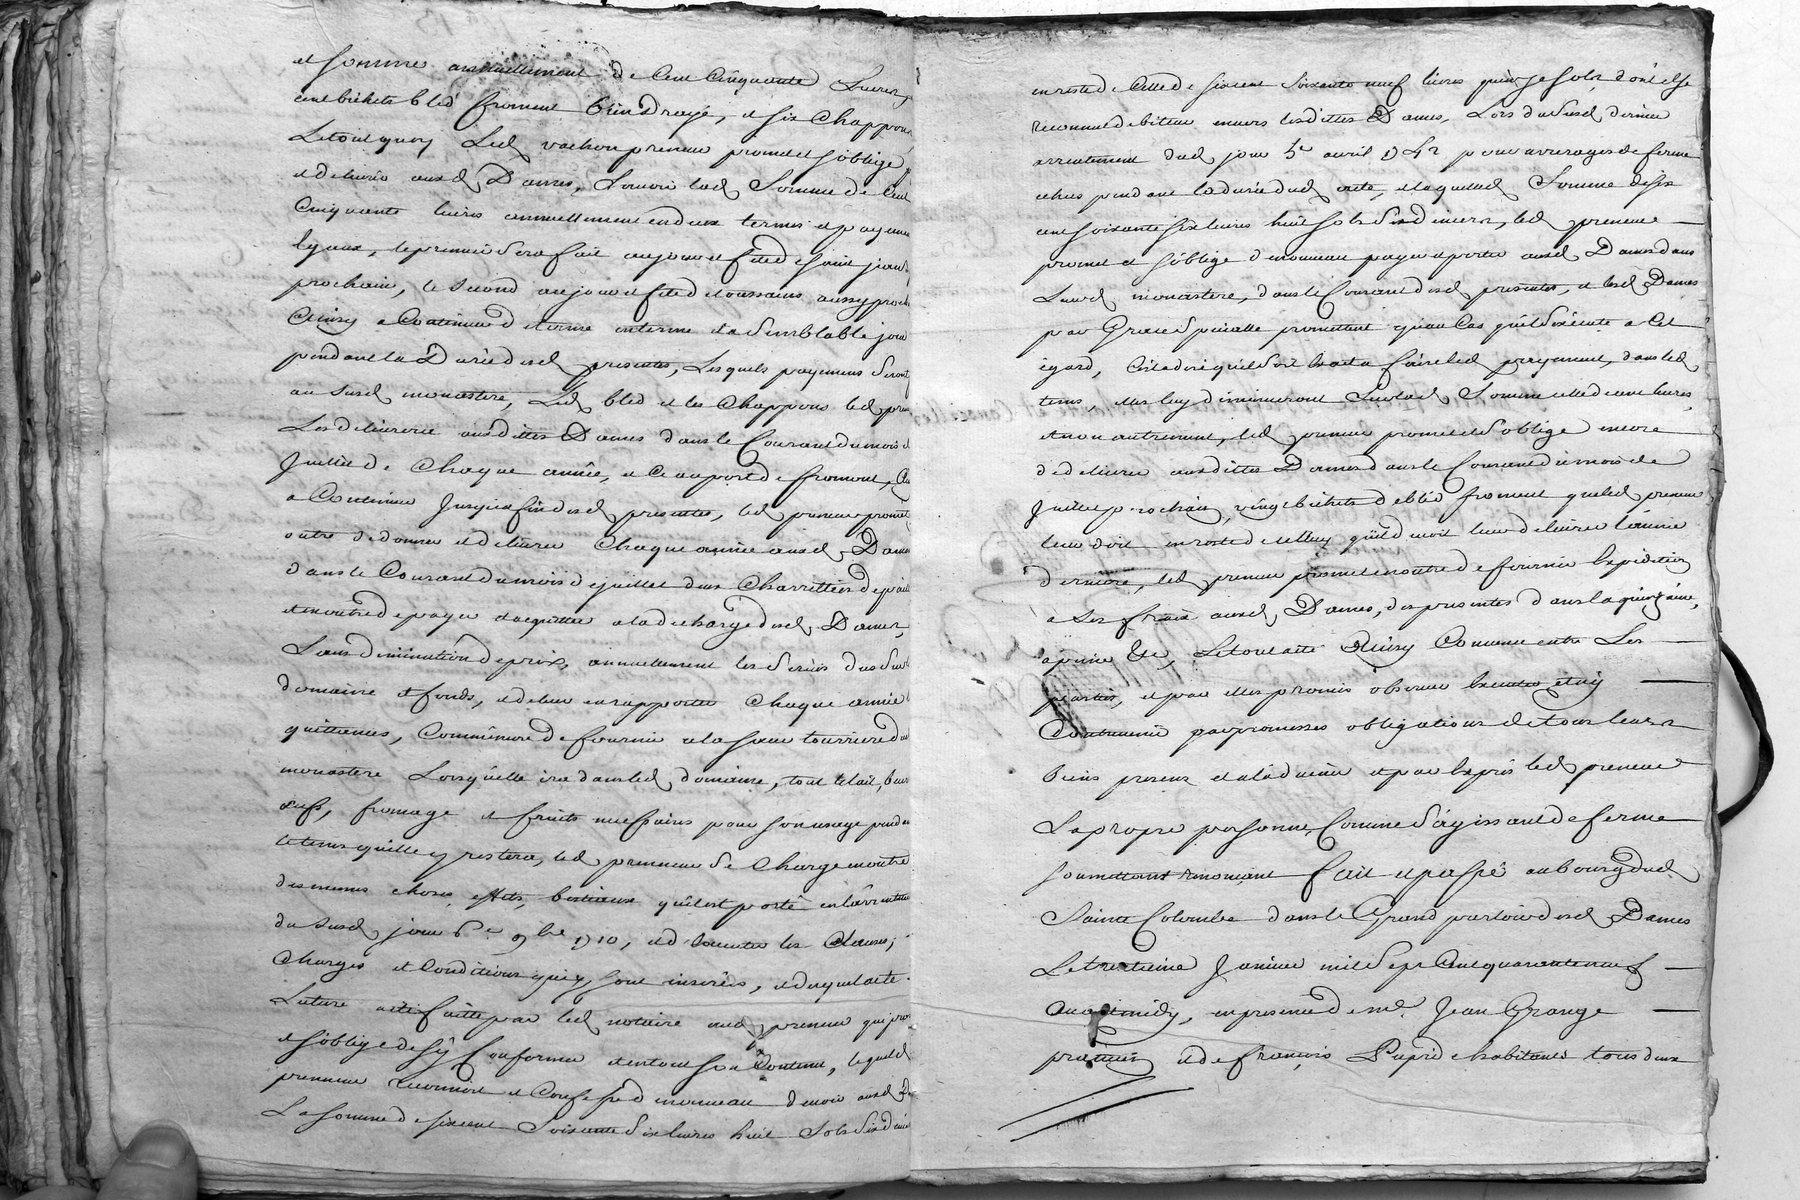 et somme annuellement de Cent Cinquante Livres,
cent bichets bled froment bien drayé, et six Chappons
Le tout quoy Led. vachon preneur promet et s'oblige
et delivrer auxd. Dames, Scavoir lad. Somme de Cent
Cinquante livres annuellement en deux termes et payemens
Egaux, le premier Sera fait au jour et fete de saint jean
prochain, le Second au jour et fete de toussains aussy proch
Ainsy a Continuer de terme en terme et a Semblable jour
pendant la Durée desd. presentes, Lesquels payemens Seront
au susd. monastere, Led. bled et les Chappons led. pren
Les delivrera ausdittes Dames dans le Courant du mois de
Juillet de Chaque année, et Ce au port de fromont, Ain
a Continuer Jusqu'a fin desd. presentes, led. preneur promet
outre de donner et delivrer Chaque année auxd. Dames
dans le Courant du mois de juillet deux Charrettées de paille
et en outre de payer et acquitter a la decharge desd. Dames,
Sans diminution de prix, annuellement les Servis dus sur
domaine et fonds, et de leur en rapporter Chaque année
quittances, Comm'encore de fournir a la soeur tourriere dud
monastere Lorsqu'elle ira dans led. domaine, tout le lait, beurre
oeufs, fromage et fruits necessaires pour son usage pendant
le tems qu'elle y restera, led. preneur Se Charge en outre
des mêmes choses, effets, bestiaux qu'il est porté en l'arrentement
du susd. jour 6e. 9bre 1710, et d'executer les Clauses,
Charges et Conditions qui y sont inserées, et duquel acte
Lecture a eté faitte par led. notaire aud. preneur qui pro
et s'oblige de s'y Conformer et en tout son Contenu, lequel d.
preneur reconnoit et Confesse de nouveau devoir auxd. D
La somme de six cent Soixante Six livres huit Sols Six deniers
en reste de Celle de six cent Soixante neuf livres quinze sols, dont il se
reconnut debiteur envers lesdittes Dames, Lors du susd. dernier
arrentement dud. jour 5e. avril 1742 pour arrerages de ferme
echus pendant la durée dud. acte, et laquelle d. Somme de six
cent soixante six livres huit sols six deniers, led. preneur
promet et s'oblige de nouveau payer et porter auxd. Dames dans
Leurd. monastere, dans le Courant desd. presentes, et lesd. Dames
par Grace Specialle promettent qu'au Cas qu'il s'execute a Cet
egard, C'est a dire qu'il soit Exact a faire led. payement, dans led.
tems, elles luy diminueront Sur lad. Somme celle de cent livres,
et non autrement, led. preneur promet et s'oblige encore
de delivrer ausdittes Dames dans le Courant du mois de
Juillet prochain, vingt bichets de bled froment que led. preneur
leur doit en reste de celluy qu'il devoit leur delivrer l'année
derniere, led. preneur promet en outre de fournir Expedition
a Ses fraix auxd. Dames, des presentes dans la quinzaine,
a peine &c, Le tout acte Ainsy Convenu entre Les
parties, et par elles promis observer Executer et n'y
Contrevenir par promesses obligations de tous leurs
biens presens et a venir et par Exprès led. preneur
La propre personne, Comme S'agissant de ferme
soumettant renonçant fait et passé au bourg dud.
Sainte Colombe dans le Grand parloir desd. Dames
Le treizieme Janvier mil Sept Cent quarante neuf
avant midy, en presence de me. Jean Grange
praticien et de françois Dupré habitants tous deux